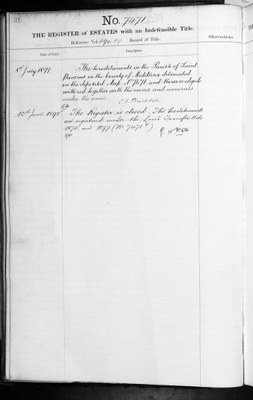 No. 7471
THE REGISTER of ESTATES with an Indefeasible Title.
Reference Vol. Record of Title.
Date of Entry
Description
Observations.
July 1877
The hereditaments in the Parish of Saint
Pancras in the County of Middlesex delineated
on the deposited Map No. 7471, and thereon edged
together with the mines and minerals
under the same
June 1898
The Register is closed. The hereditaments
are registered under the Land Transfer Acts
1875 and 1897 (No. 7471)